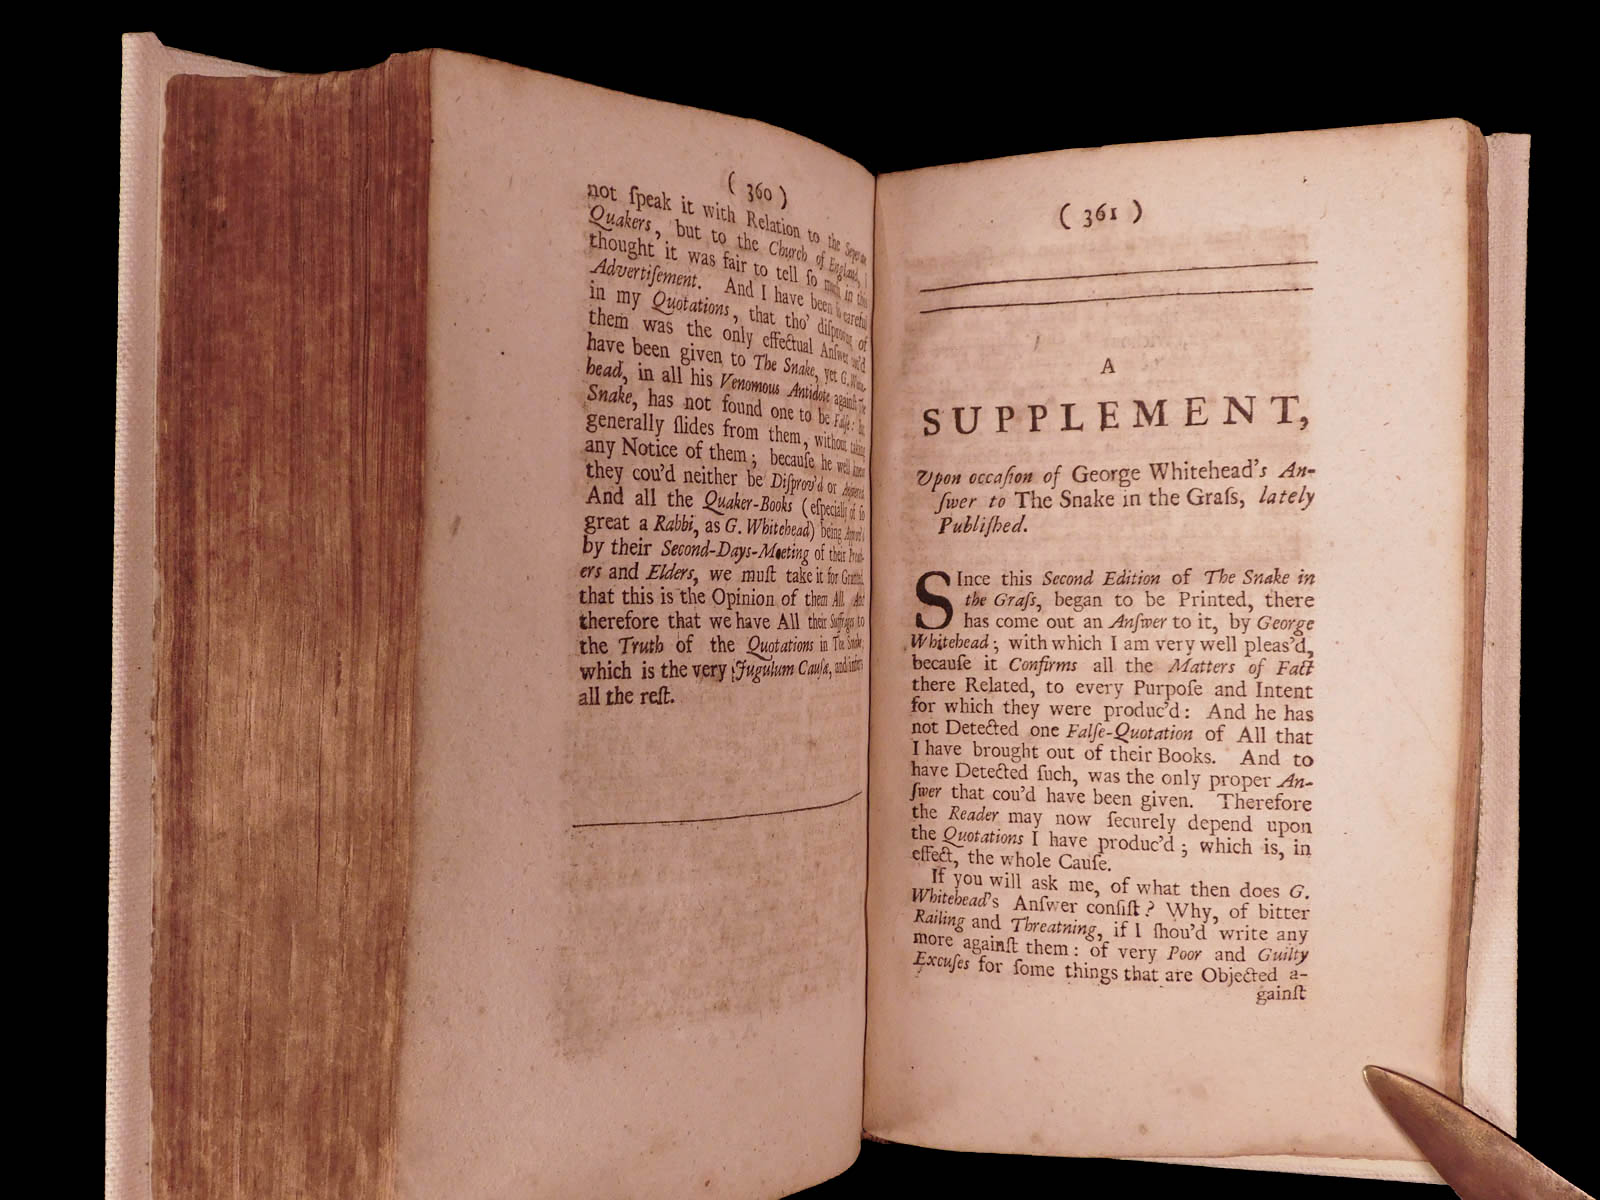 ( 360 )
not ſpeak it with Relation to the
Quakers, but to the Church of England, I
thought it was fair to tell ſo much in this
Advertiſement. And I have been ſo careful
in my Quotations, that tho' diſproving of
them was the only effectual Anſwer cou'd
have been given to The Snake, yet G. White-
head, in all his Venomous Antidote againſt The
Snake, has not found one to be Falſe: but
generally ſlides from them, without taking
any Notice of them; becauſe he well knew
they cou'd neither be Diſprov'd or Anſwered.
And all the Quaker-Books (eſpecially of ſo
great a Rabbi, as G. Whitehead) being Approv'd
by their Second-Days-Meeting of their Preach-
ers and Elders, we muſt take it for Granted,
that this is the Opinion of them All. And
therefore that we have All their Suffrages to
the Truth of the Quotations in The Snake,
which is the very Jugulum Cauſæ, and infers
all the reſt.
( 361 )
A
SUPPLEMENT,
Upon occaſion of George Whitehead's An-
ſwer to The Snake in the Graſs, lately
Publiſhed.
SInce this Second Edition of The Snake in
the Graſs, began to be Printed, there
has come out an Anſwer to it, by George
Whitehead; with which I am very well pleas'd,
becauſe it Confirms all the Matters of Fact
there Related, to every Purpoſe and Intent
for which they were produc'd: And he has
not Detected one Falſe-Quotation of All that
I have brought out of their Books. And to
have Detected ſuch, was the only proper An-
ſwer that cou'd have been given. Therefore
the Reader may now ſecurely depend upon
the Quotations I have produc'd; which is, in
effect, the whole Cauſe.
If you will ask me, of what then does G.
Whitehead's Anſwer conſiſt? Why, of bitter
Railing and Threatning, if I ſhou'd write any
more againſt them: of very Poor and Guilty
Excuſes for ſome things that are Objected a-
gainſt